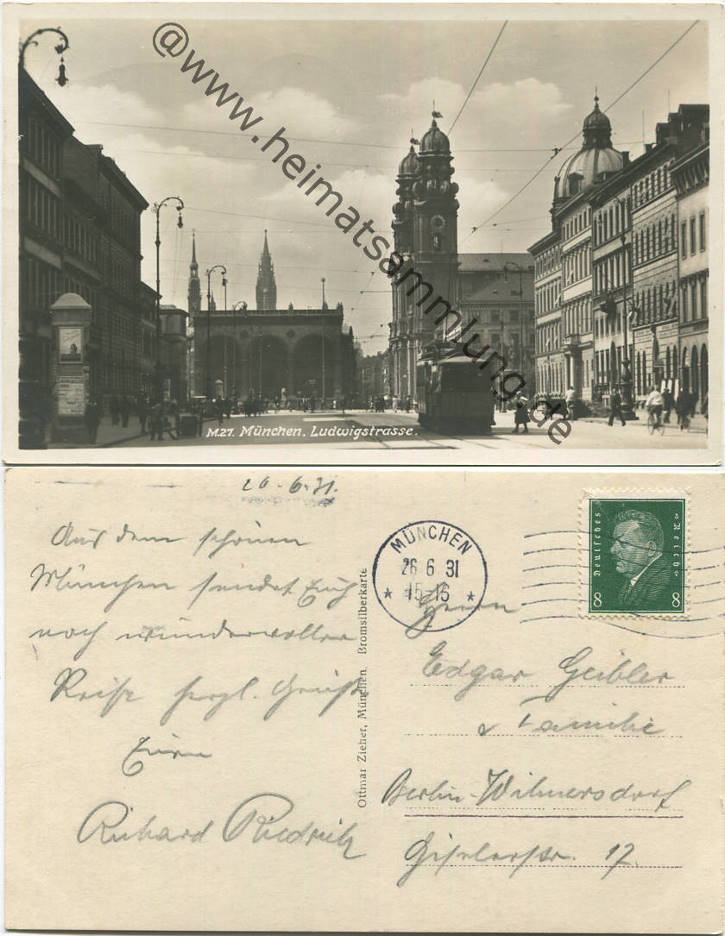 @www.heimatsammlung.de
M.27. München. Ludwigstrasse.
26.6.31.
Aus dem schönen
München sendet Euch
nach wundervoller
Reise herzl. Grüße
Euer
Richard
Ottmar Zieher, München. Bromsilberkarte
MÜNCHEN
26 6 31
15-16
Deutsches Reich
8 8
Herrn
Edgar Geibler
& Familie
Berlin-Wilmersdorf
Giselerstr. 17.